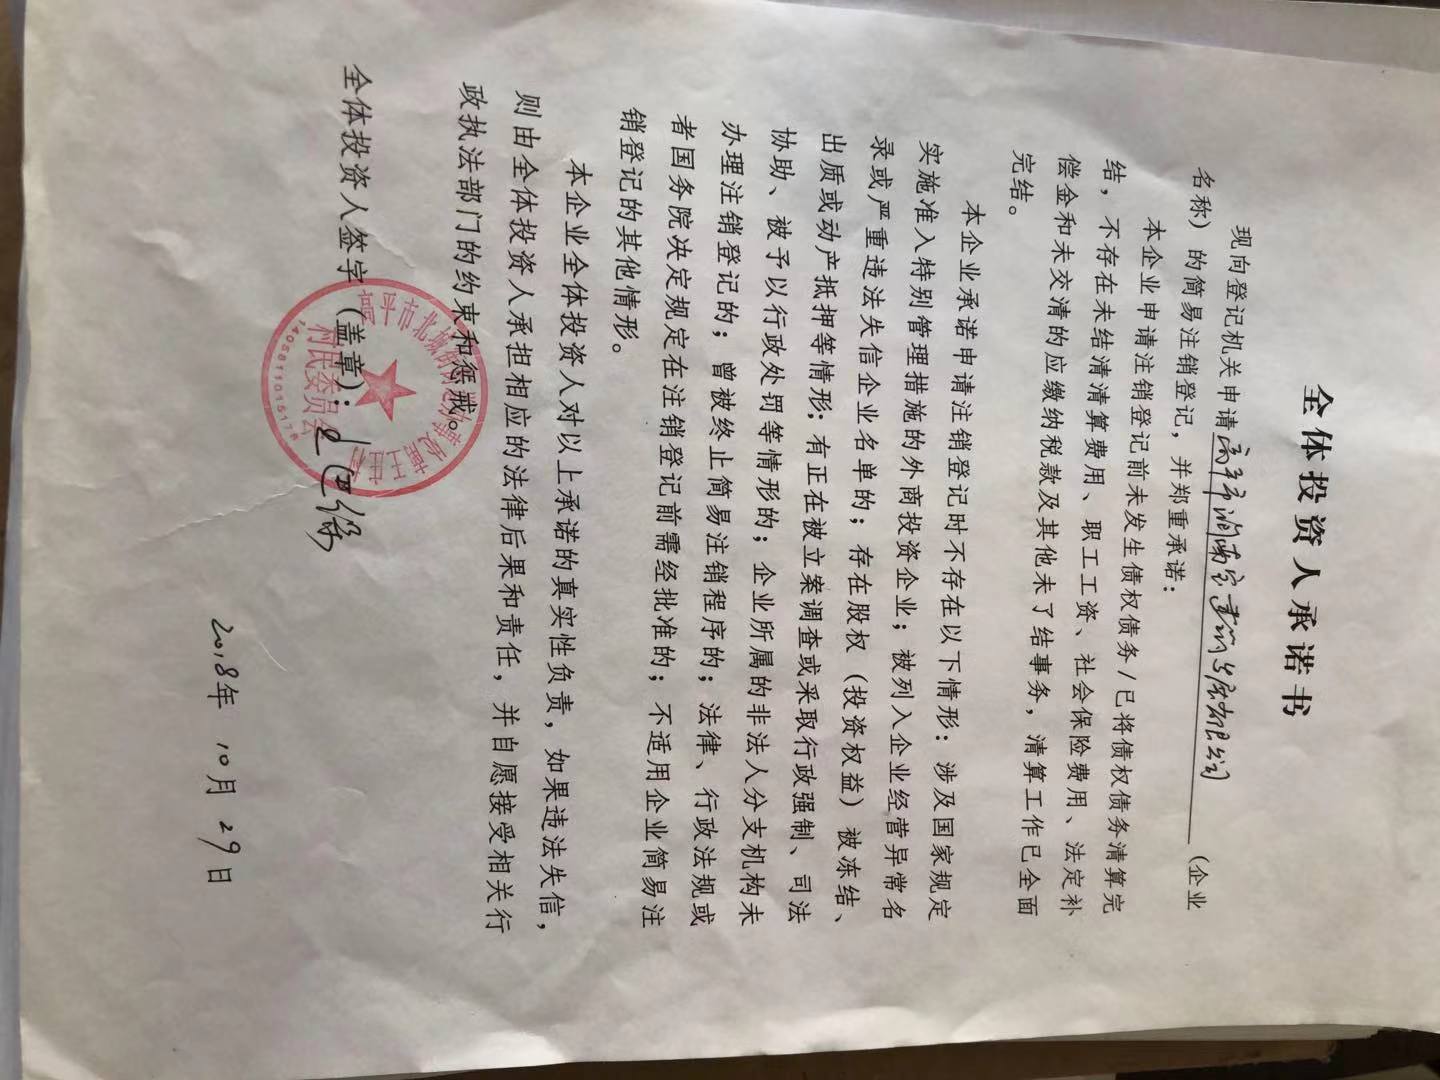 全体投资人承诺书
现向登记机关申请高平市 有限公司(企业
名称)的简易注销登记,并郑重承诺:
本企业申请注销登记前未发生债权债务/已将债权债务清算完
结,不存在未结清清算费用、职工工资、社会保险费用、法定补
偿金和未交清的应缴纳税款及其他未了结事务,清算工作已全面
完结。
本企业承诺申请注销登记时不存在以下情形:涉及国家规定
实施准入特别管理措施的外商投资企业;被列入企业经营异常名
录或严重违法失信企业名单的;存在股权(投资权益)被冻结、
出质或动产抵押等情形;有正在被立案调查或采取行政强制、司法
协助、被予以行政处罚等情形的;企业所属的非法人分支机构未
办理注销登记的;曾被终止简易注销程序的;法律、行政法规或
者国务院决定规定在注销登记前需经批准的;不适用企业简易注
销登记的其他情形。
本企业全体投资人对以上承诺的真实性负责,如果违法失信,
则由全体投资人承担相应的法律后果和责任,并自愿接受相关行
政执法部门的约束和惩戒。
全体投资人签字(盖章):
高平市北城街街道办事处
村民委员会
2018年 10月 29日